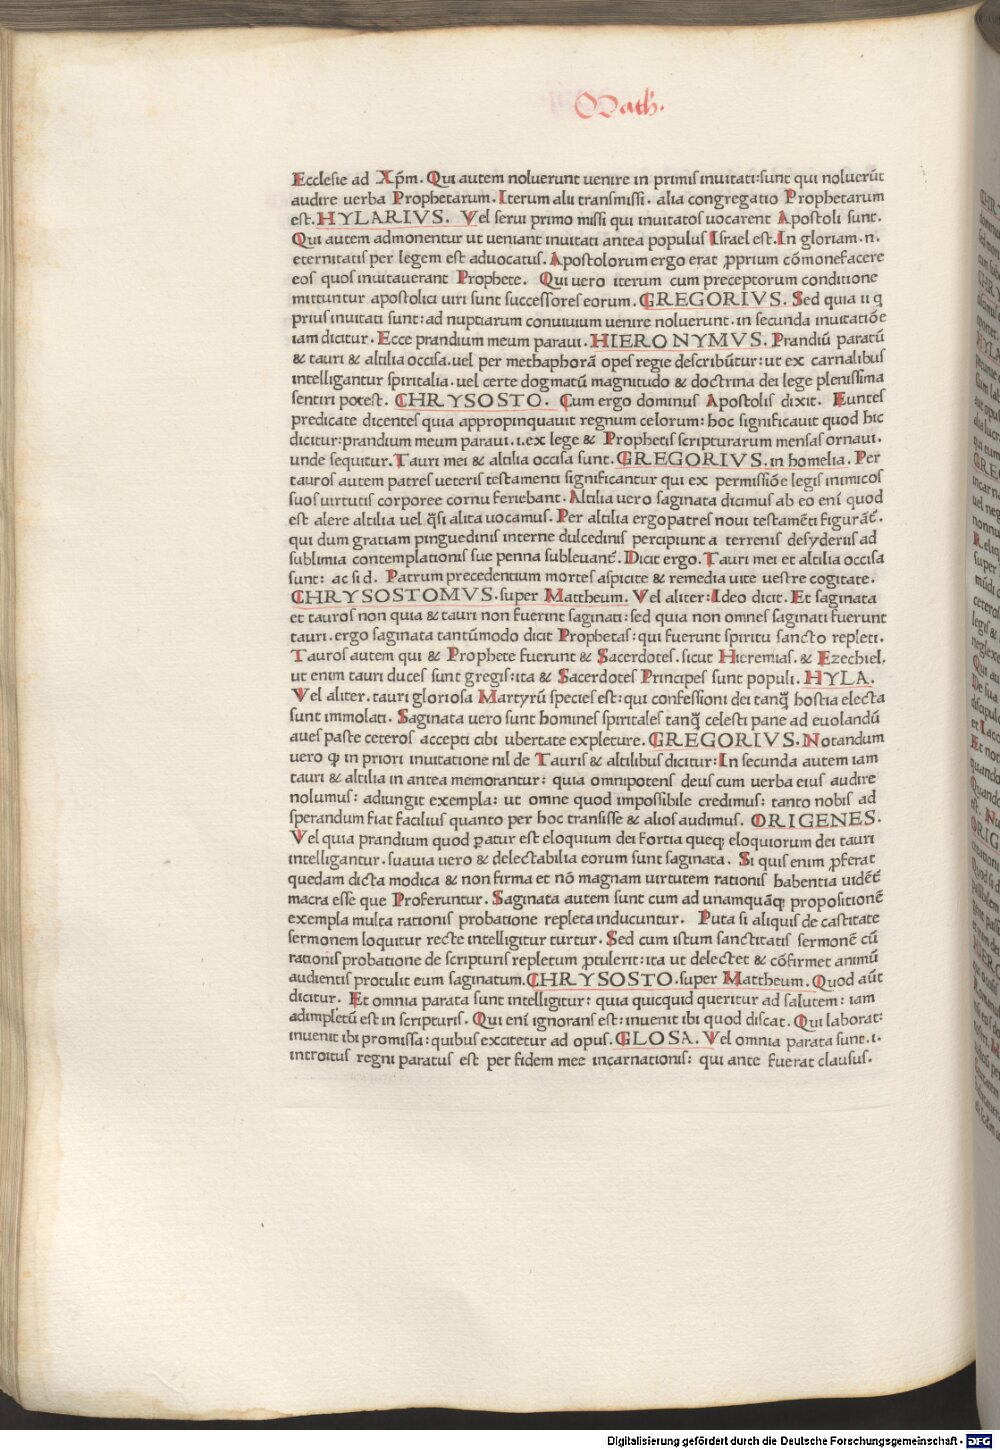 Math.
Ecclesie ad Xp̄m. Qui autem noluerunt uenire in primis inuitati:sunt qui noluerūt
audire uerba Prophetarum. Iterum alii transmissi. alia congregatio Prophetarum
est. HYLARIVS. Vel serui primo missi qui inuitatos uocarent Apostoli sunt.
Qui autem admonentur ut ueniant inuitati antea populus Israel est. In gloriam .n.
eternitatis per legem est aduocatus. Apostolorum ergo erat ꝓprium cōmonefacere
eos quos inuitauerant Prophete. Qui uero iterum cum preceptorum conditione
mittuntur apostolici uiri sunt successores eorum. GREGORIVS. Sed quia ii q
prius inuitati sunt: ad nuptiarum conuiuium uenire noluerunt. in secunda inuitatiōe
iam dicitur. Ecce prandium meum paraui. HIERONYMVS. Prandiū paratū
& tauri & altilia occisa. uel per methaphorā opes regie describūtur: ut ex carnalibus
intelligantur spiritalia. uel certe dogmatū magnitudo & doctrina dei lege plenissima
sentiri potest. CHRYSOSTO. Cum ergo dominus Apostolis dixit. Euntes
predicate dicentes quia appropinquauit regnum celorum: hoc significauit quod hic
dicitur: prandium meum paraui. i. ex lege & Prophetis scripturarum mensas ornaui.
unde sequitur. Tauri mei & altilia occisa sunt. GREGORIVS. in homelia. Per
tauros autem patres ueteris testamenti significantur qui ex permissiōe legis inimicos
suos uirtutis corporee cornu feriebant. Altilia uero saginata dicimus ab eo eni quod
est alere altilia uel q̄si alita uocamus. Per altilia ergopatres noui testamēti figurāt̄.
qui dum gratiam pinguedinis interne dulcedinis percipiunt a terrenis desyderiis ad
sublimia contemplationis sue penna subleuant̄. Dicit ergo. Tauri mei et altilia occisa
sunt: ac si d. Patrum precedentium mortes aspicite & remedia uite uestre cogitate.
CHRYSOSTOMVS. super Mattheum. Vel aliter: Ideo dicit. Et saginata
et tauros non quia & tauri non fuerint saginati: sed quia non omnes saginati fuerunt
tauri. ergo saginata tantūmodo dicit Prophetas: qui fuerunt spiritu sancto repleti.
Tauros autem qui & Prophete fuerunt & Sacerdotes. sicut Hieremias. & Ezechiel.
ut enim tauri duces sunt gregis: ita & Sacerdotes Principes sunt populi. HYLA.
Vel aliter. tauri gloriosa Martyrū species est: qui confessioni dei tanq̄ hostia electa
sunt immolati. Saginata uero sunt homines spiritales tanq̄ celesti pane ad euolandū
aues paste ceteros accepti cibi ubertate expleture. GREGORIVS. Notandum
uero ꝙ in priori inuitatione nil de Tauris & altilibus dicitur: In secunda autem iam
tauri & altilia in antea memorantur: quia omnipotens deus cum uerba eius audire
nolumus: adiungit exempla: ut omne quod impossibile credimus: tanto nobis ad
sperandum fiat facilius quanto per hoc transisse & alios audimus. ORIGENES.
Vel quia prandium quod ꝑatur est eloquium dei fortia queq; eloquiorum dei tauri
intelligantur. suauia uero & delectabilia eorum sunt saginata. Si quis enim ꝓferat
quedam dicta modica & non firma et nō magnam uirtutem rationis habentia uidēt̄
macra esse que Proferuntur. Saginata autem sunt cum ad unamquāq; propositionē
exempla multa rationis probatione repleta inducuntur. Puta si aliquis de castitate
sermonem loquitur recte intelligitur turtur. Sed cum istum sanctitatis sermonē cū
rationis probatione de scripturis repletum ꝓtulerit: ita ut delectet & cōfirmet animū
audientis protulit eum saginatum. CHRYSOSTO. super Mattheum. Quod aūt
dicitur. Et omnia parata sunt intelligitur: quia quicquid queritur ad salutem: iam
adimpletū est in scripturis. Qui eni ignorans est: inuenit ibi quod discat. Qui laborat:
inuenit ibi promissa: quibus excitetur ad opus. GLOSA. Vel omnia parata sunt. i.
introitus regni paratus est per fidem mee incarnationis: qui ante fuerat clausus.
Digitalisierung gefördert durch die Deutsche Forschungsgemeinschaft - DFG